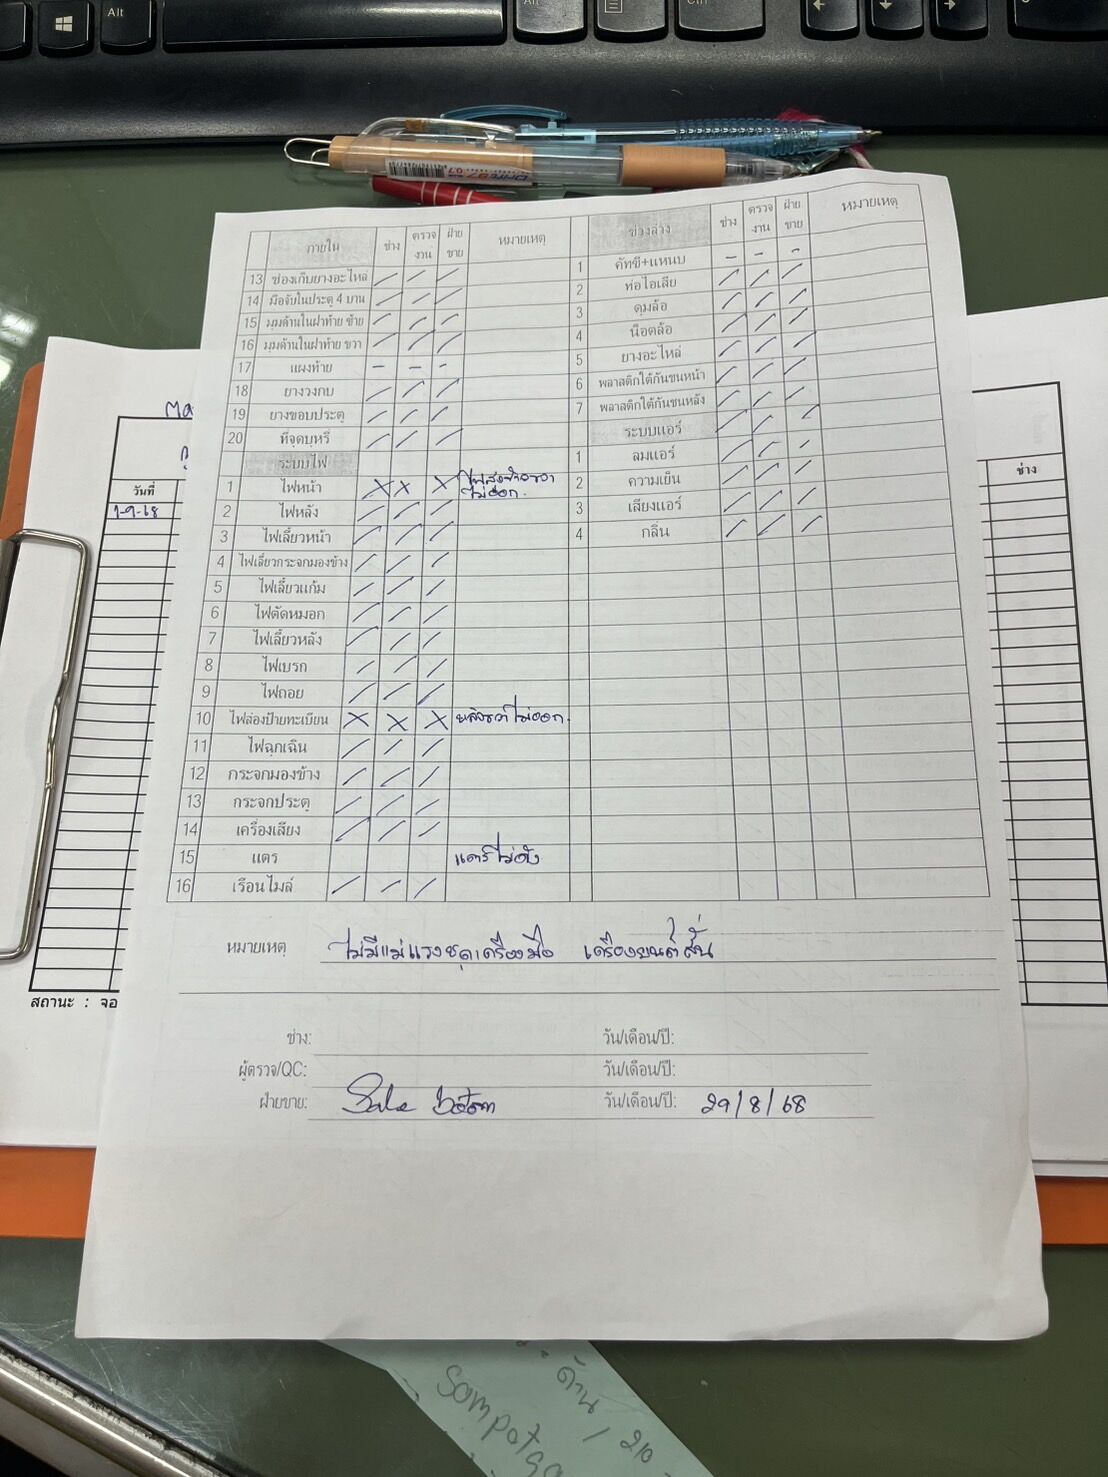 Alt
Alt
Ctrl
ภายใน ช่าง ตรวจงาน ฝ่ายขาย หมายเหตุ ช่วงล่าง ช่าง ตรวจงาน ฝ่ายขาย หมายเหตุ
13 ช่องเก็บยางอะไหล่ / / / 1 คัทซี+แหนบ - - -
14 มือจับในประตู 4 บาน / / / 2 ท่อไอเสีย / / /
15 มุมด้านในฝาท้าย ซ้าย / / / 3 ดุมล้อ / / /
16 มุมด้านในฝาท้าย ขวา / / / 4 น็อตล้อ / / /
17 แผงท้าย - - - 5 ยางอะไหล่ / / /
18 ยางวงกบ / / / 6 พลาสติกใต้กันชนหน้า / / /
19 ยางขอบประตู / / / 7 พลาสติกใต้กันชนหลัง / / /
20 ที่จุดบุหรี่ / / / ระบบแอร์ / / /
ระบบไฟ 1 ลมแอร์ / / /
1 ไฟหน้า X X X ไม่ออก. 2 ความเย็น / / /
2 ไฟหลัง / / / 3 เสียงแอร์ / / /
3 ไฟเลี้ยวหน้า / / / 4 กลิ่น / / /
4 ไฟเลี้ยวกระจกมองข้าง / / /
5 ไฟเลี้ยวแก้ม / / /
6 ไฟตัดหมอก / / /
7 ไฟเลี้ยวหลัง / / /
8 ไฟเบรก / / /
9 ไฟถอย / / /
10 ไฟส่องป้ายทะเบียน X X X ไม่ออก.
11 ไฟฉุกเฉิน / / /
12 กระจกมองข้าง / / /
13 กระจกประตู / / /
14 เครื่องเสียง / / /
15 แตร แตรไม่ดัง
16 เรือนไมล์ / / /
หมายเหตุ ไม่มีแม่แรงชุดเครื่องมือ เครื่องยนต์สั่น
ช่าง: วัน/เดือน/ปี:
ผู้ตรวจ/QC: วัน/เดือน/ปี:
ฝ่ายขาย: Sale วัน/เดือน/ปี: 29/8/68
วันที่
1-9-68
ช่าง
สถานะ : จอ
ด้าน / 210